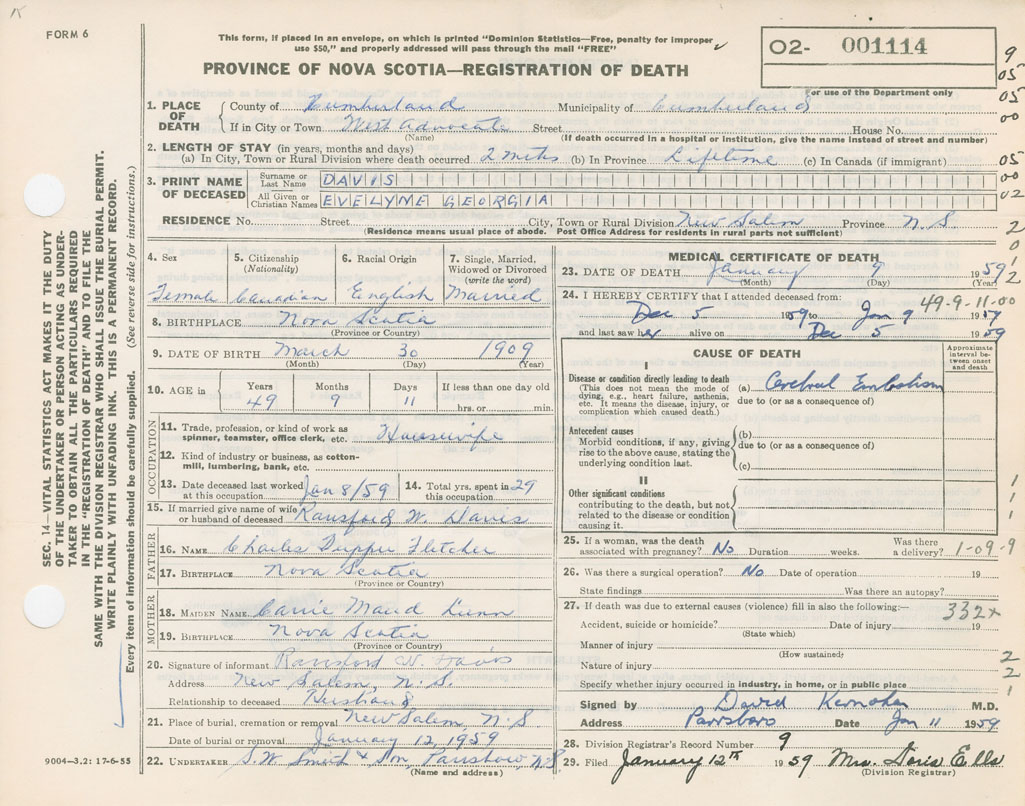 FORM 6
This form, if placed in an envelope, on which is printed "Dominion Statistics—Free, penalty for improper
use $50," and properly addressed will pass through the mail "FREE"
O2- 001114
For use of the Department only
PROVINCE OF NOVA SCOTIA—REGISTRATION OF DEATH
SEC. 14—VITAL STATISTICS ACT MAKES IT THE DUTY
OF THE UNDERTAKER OR PERSON ACTING AS UNDER-
TAKER TO OBTAIN ALL THE PARTICULARS REQUIRED
IN THE "REGISTRATION OF DEATH" AND TO FILE THE
SAME WITH THE DIVISION REGISTRAR WHO SHALL ISSUE THE BURIAL PERMIT.
WRITE PLAINLY WITH UNFADING INK. THIS IS A PERMANENT RECORD.
Every item of information should be carefully supplied. (See reverse side for instructions.)
1. PLACE OF DEATH County of Cumberland Municipality of Cumberland
If in City or Town West Advocate Street House No.
(Name) (If death occurred in a hospital or institution, give the name instead of street and number)
2. LENGTH OF STAY (in years, months and days)
(a) In City, Town or Rural Division where death occurred 2 mths (b) In Province Lifetime (c) In Canada (if immigrant)
3. PRINT NAME OF DECEASED Surname or Last Name DAVIS
All Given or Christian Names EVELYNE GEORGIA
RESIDENCE No. Street City, Town or Rural Division New Salem Province N.S.
(Residence means usual place of abode. Post Office Address for residents in rural parts not sufficient)
9
05
05
00
05
00
02
2
0
1
2
4. Sex 5. Citizenship (Nationality) 6. Racial Origin 7. Single, Married, Widowed or Divorced (write the word)
Female Canadian English Married
8. BIRTHPLACE Nova Scotia
(Province or Country)
9. DATE OF BIRTH March 30 1909
(Month) (Day) (Year)
10. AGE in Years Months Days If less than one day old
49 9 11 hrs. or min.
OCCUPATION
11. Trade, profession, or kind of work as spinner, teamster, office clerk, etc. Housewife
12. Kind of industry or business, as cotton-mill, lumbering, bank, etc.
13. Date deceased last worked at this occupation Jan 8/59 14. Total yrs. spent in this occupation 29
15. If married give name of wife or husband of deceased Ransford W. Davis
FATHER
16. NAME Charles Tupper Fletcher
17. BIRTHPLACE Nova Scotia
(Province or Country)
MOTHER
18. MAIDEN NAME Carrie Maud
19. BIRTHPLACE Nova Scotia
(Province or Country)
20. Signature of informant Ransford W. Davis
Address New Salem, N.S.
Relationship to deceased Husband
21. Place of burial, cremation or removal New Salem, N.S
Date of burial or removal January 12, 1959
22. UNDERTAKER S.W. Smith & Son, Parrsboro, N.S.
(Name and address)
9004—3.2: 17-6-55
MEDICAL CERTIFICATE OF DEATH
23. DATE OF DEATH January 9 1959
(Month) (Day) (Year)
24. I HEREBY CERTIFY that I attended deceased from: 49-9-11-00
Dec 5 1959 to Jan 9 19
and last saw her alive on Dec 5 1959
CAUSE OF DEATH
Approximate interval between onset and death
I
Disease or condition directly leading to death
(This does not mean the mode of dying, e.g., heart failure, asthenia, etc. It means the disease, injury, or complication which caused death.)
(a) Cerebral Embolism
due to (or as a consequence of)
Antecedent causes
Morbid conditions, if any, giving rise to the above cause, stating the underlying condition last.
(b)
due to (or as a consequence of)
(c)
II
Other significant conditions
contributing to the death, but not related to the disease or condition causing it.
1
1
1
25. If a woman, was the death associated with pregnancy? No Duration weeks. Was there a delivery? 1-09-9
26. Was there a surgical operation? No Date of operation 19
State findings Was there an autopsy?
27. If death was due to external causes (violence) fill in also the following:— 332x
Accident, suicide or homicide? Date of injury 19
(State which)
Manner of injury
(How sustained)
Nature of injury
Specify whether injury occurred in industry, in home, or in public place
2
2
1
Signed by David Kernohan M.D.
Address Parrsboro Date Jan 11 1959
28. Division Registrar's Record Number 9
29. Filed January 12th 1959 Mrs. Doris Ells
(Division Registrar)